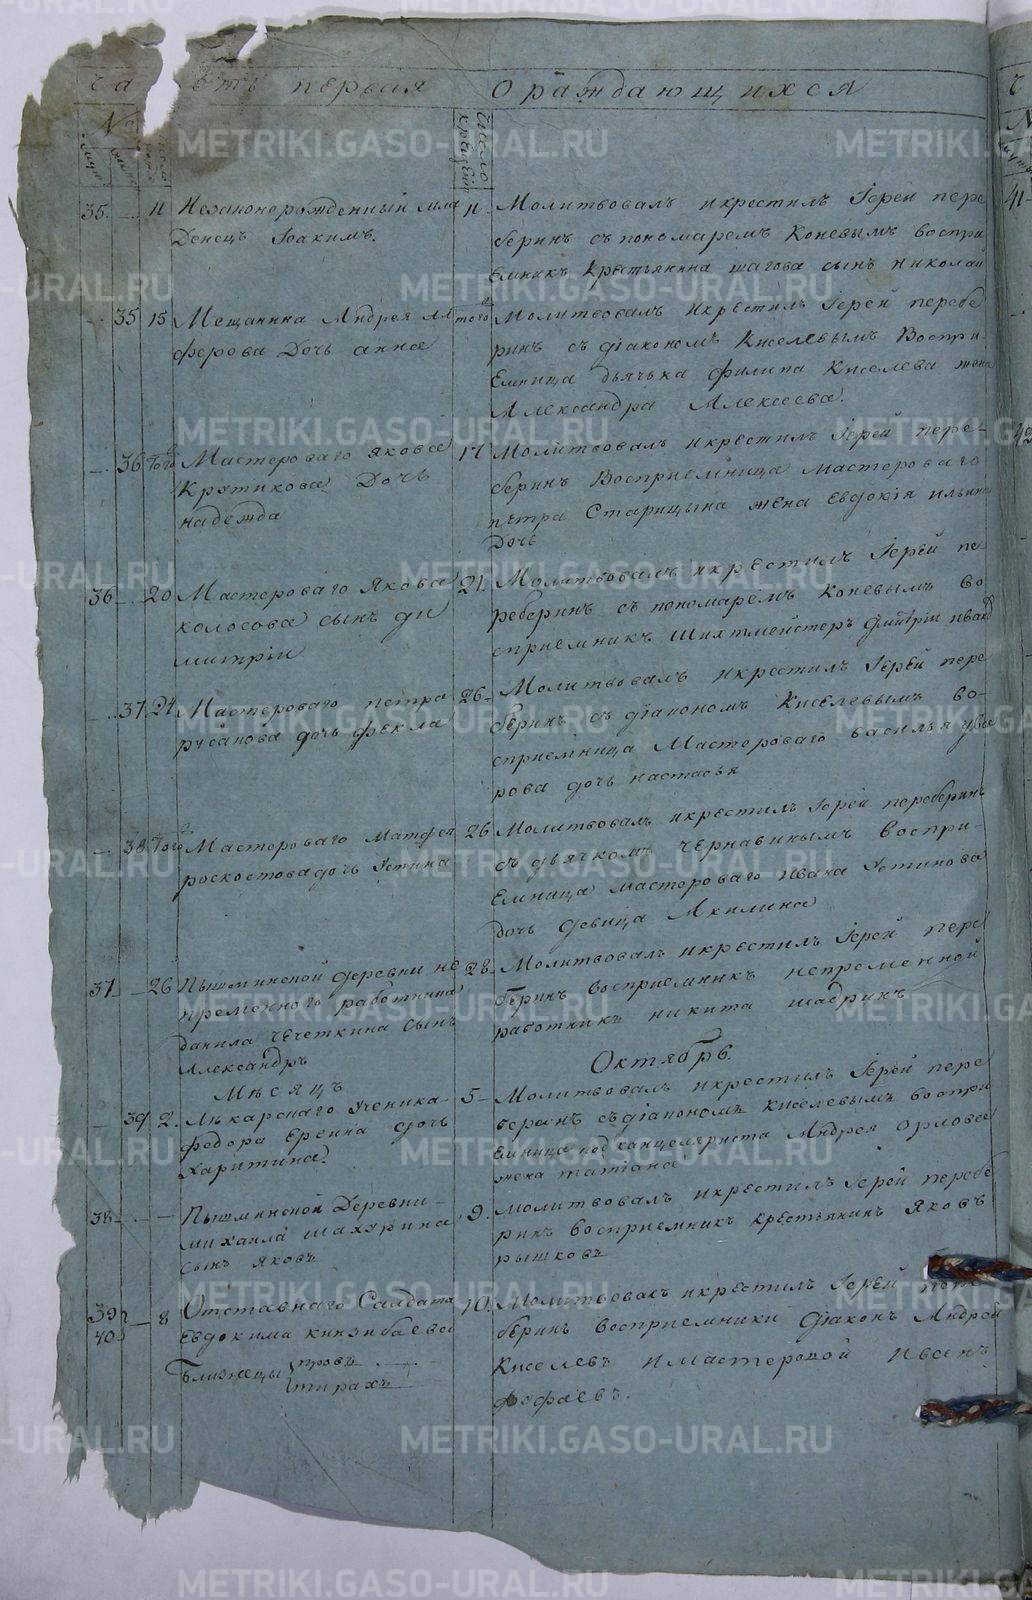 Часть первая о раждающихся
№
Число
крещенія
35 11 Незаконорожденный мла
денецъ Іоакимъ.
11 Молитвовалъ икрестилъ Іерей пере
беринъ съ пономаремъ Коневымъ воспри
емникъ Крестьянина шагова сынъ николай
35 15 Мещанина Андрея Ал
ферова Дочь анна
того Молитвовалъ икрестилъ Іерей перебе
ринъ съ діакономъ Киселевымъ Воспри
емница дьячька филипа Киселева жена
Александра Алексеева.
36 Того Мастероваго якова
Крутикова Дочь
надежда
17 Молитвовалъ икрестилъ Іерей пере-
беринъ Восприемница мастероваго
петра Старицына жена Евдокія ильина
Дочь
36 20 Мастероваго Якова
колосова сынъ ди
митріи
21. Молитвовалъ икрестилъ Іерей пе-
реберинъ съ пономаремъ Коневымъ во
сприемникъ Шихтмейстеръ Дмитріи
37. 24. Мастероваго петра
русанова дочь фекла
26 Молитвовалъ икрестилъ Іерей пере
беринъ съ діакономъ Киселевымъ во-
сприемница Мастероваго василья
рова дочь настасья
38. Того Мастероваго Матфея
роскостова дочь Устина
26 Молитвовалъ икрестилъ Іерей переберинъ
съ дьячкомъ чернавинымъ воспри-
емница мастероваго ивана Устинова
дочь девица Акилина
37 26 Пышминской деревни не
пременного работника
данила Чечеткина сынъ
Александръ
28 Молитвовалъ икрестилъ Іерей пере
беринъ восприемникъ непременной
работникъ никита шадринъ
Месяцъ Октябрь.
39. 2. Лѣкарскаго Ученика
федора Еренна дочь
Харитина.
5 Молитвовалъ икрестилъ Іерей пере
беринъ съ діакономъ Киселевымъ воспри
емница подканцеляриста Андрея Орлова
жена татіана
38 Пышминской Деревни
михаила шахурина
сынъ яковъ
9. молитвовалъ икрестилъ Іерей перебе
ринъ восприемникъ крестьянинъ Яковъ
рышковъ
39
40 8 Отставнаго Салдата
Евдокима кинзибаева
Близнецы провъ
тирахъ
10. Молитвовалъ икрестилъ Іерей пере
беринъ восприемники діаконъ Андрей
Киселевъ и Мастеровой
фофаевъ.
41
42
METRIKI.GASO-URAL.RU